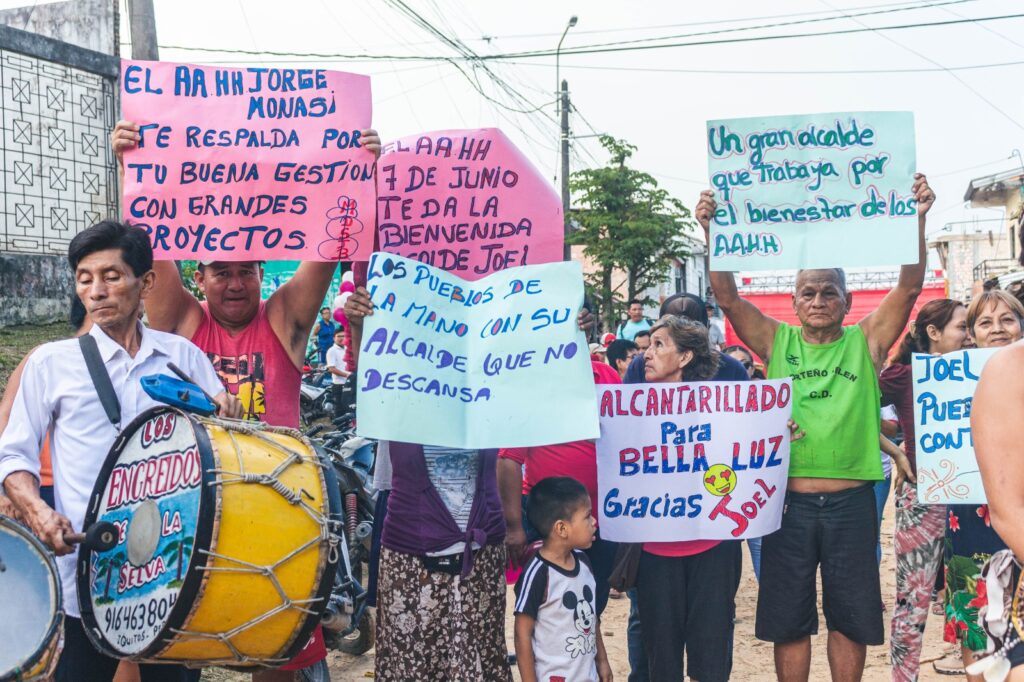 EL AA.HH JORGE
MONASí
TE RESPALDA POR
TU BUENA GESTIÓN
CON GRANDES
PROYECTOS.
EL AA HH
7 DE JUNIO
TE DA LA
BIENVENIDA
JOEL
LOS PUEBLOS DE
LA MANO CON SU
ALCALDE QUE NO
DESCANSA
Un gran alcalde
que trabaja por
el bienestar de los
AA.HH
ALCANTARILLADO
Para
BELLA LUZ
Gracias JOEL
JOEL
PUEB
CONT
LOS
ENGREIDOS
DE LA
SELVA
IQUITOS
C.D.